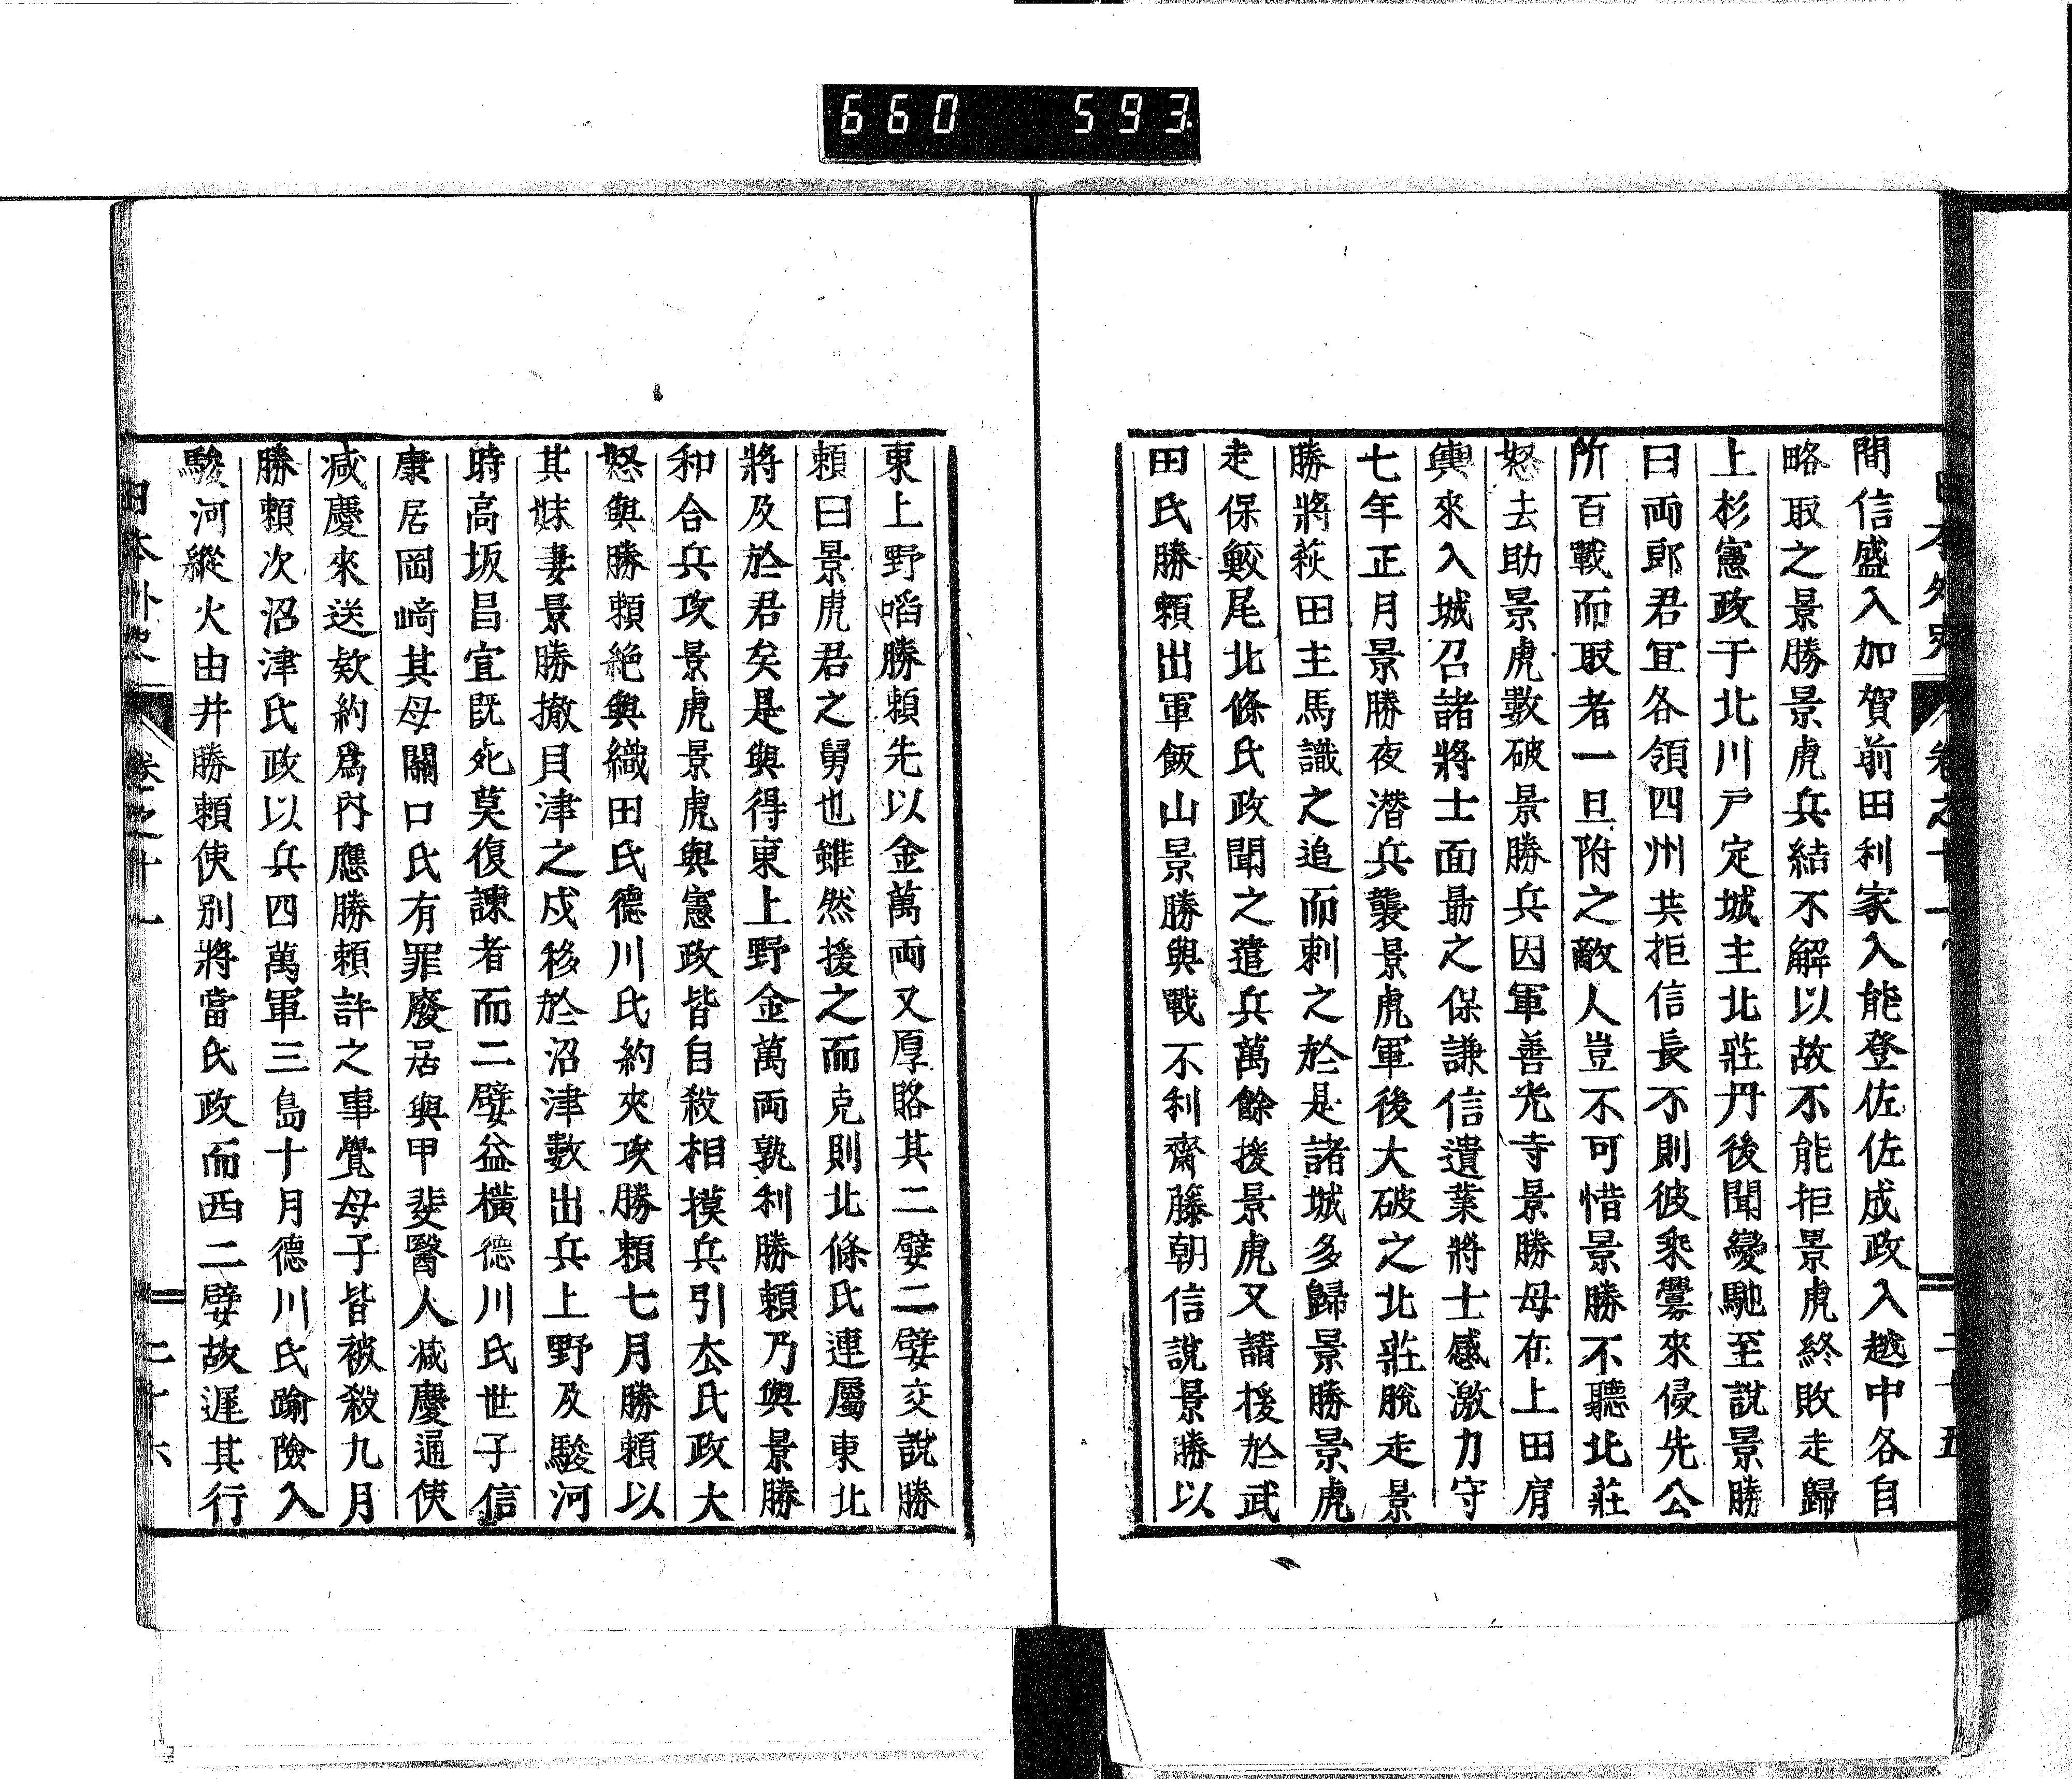 660 593.
間信盛入加賀前田利家入能登佐佐成政入越中各自
略取之景勝景虎兵結不解以故不能拒景虎終敗走歸
上杉憲政于北川戸定城主北莊丹後聞變馳至說景勝
曰兩郎君宜各領四州共拒信長不則彼乘釁來侵先公
所百戰而取者一旦附之敵人豈不可惜景勝不聽北莊
怒去助景虎數破景勝兵因軍善光寺景勝母在上田肩
輿來入城召諸將士面勗之保謙信遺業將士感激力守
七年正月景勝夜潛兵襲景虎軍後大破之北莊脫走景
勝將萩田主馬識之追而刺之於是諸城多歸景勝景虎
走保鮫尾北條氏政聞之遣兵萬餘援景虎又請援於武
田氏勝賴出軍飯山景勝與戰不利齋藤朝信說景勝以
東上野啗勝賴先以金萬兩又厚賂其二嬖二嬖交說勝
賴曰景虎君之舅也雖然援之而克則北條氏連屬東北
將及於君矣是與得東上野金萬兩孰利勝賴乃與景勝
和合兵攻景虎景虎與憲政皆自殺相摸兵引去氏政大
怒與勝賴絕與織田氏德川氏約夾攻勝賴七月勝賴以
其妹妻景勝撤貝津之戍移於沼津數出兵上野及駿河
時高坂昌宜既死莫復諫者而二嬖益橫德川氏世子信
康居岡崎其母關口氏有罪廢居與甲斐醫人减慶通使
减慶來送欵約爲內應勝賴許之事覺母子皆被殺九月
勝賴次沼津氏政以兵四萬軍三島十月德川氏踰險入
駿河縱火由井勝賴使別將當氏政而西二嬖故遲其行
日本外史 卷之十一 二十六